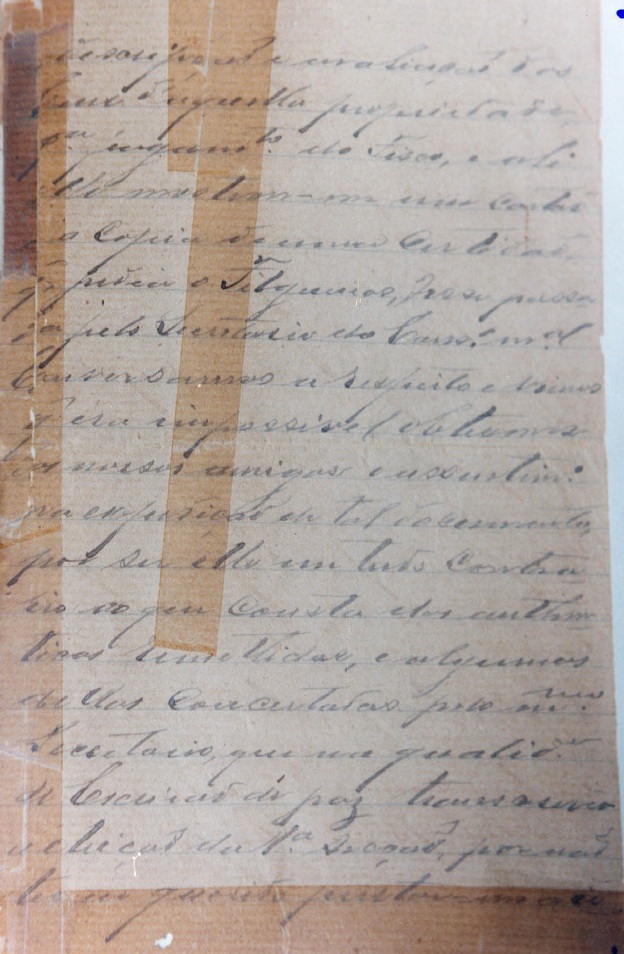 descripção e avaliação dos
bens d'aquella propriedade,
pª. jugamtº. do Fisco, e ali
elle mostrou-me uma carta
e a copia de uma Certidão,
q̃ pedia o Filgueiras, fosse passa
da pelo Secretario do Consº. mᵃˡ
Conversamos a respeito e vimos
q̃ era impossivel obtermos
dos nossos amigos o assentimº.
na expedição de tal documento,
por ser elle em tudo contra
rio ao que consta dos authen
ticos remettidos, e algumas
dellas concertadas pelo mᵐᵒ.
Secretario, que na qualidᵉ.
de Escrivão de paz transcreveo
a eleição da 1ª. Secção, por não
ter querido prestar-se a